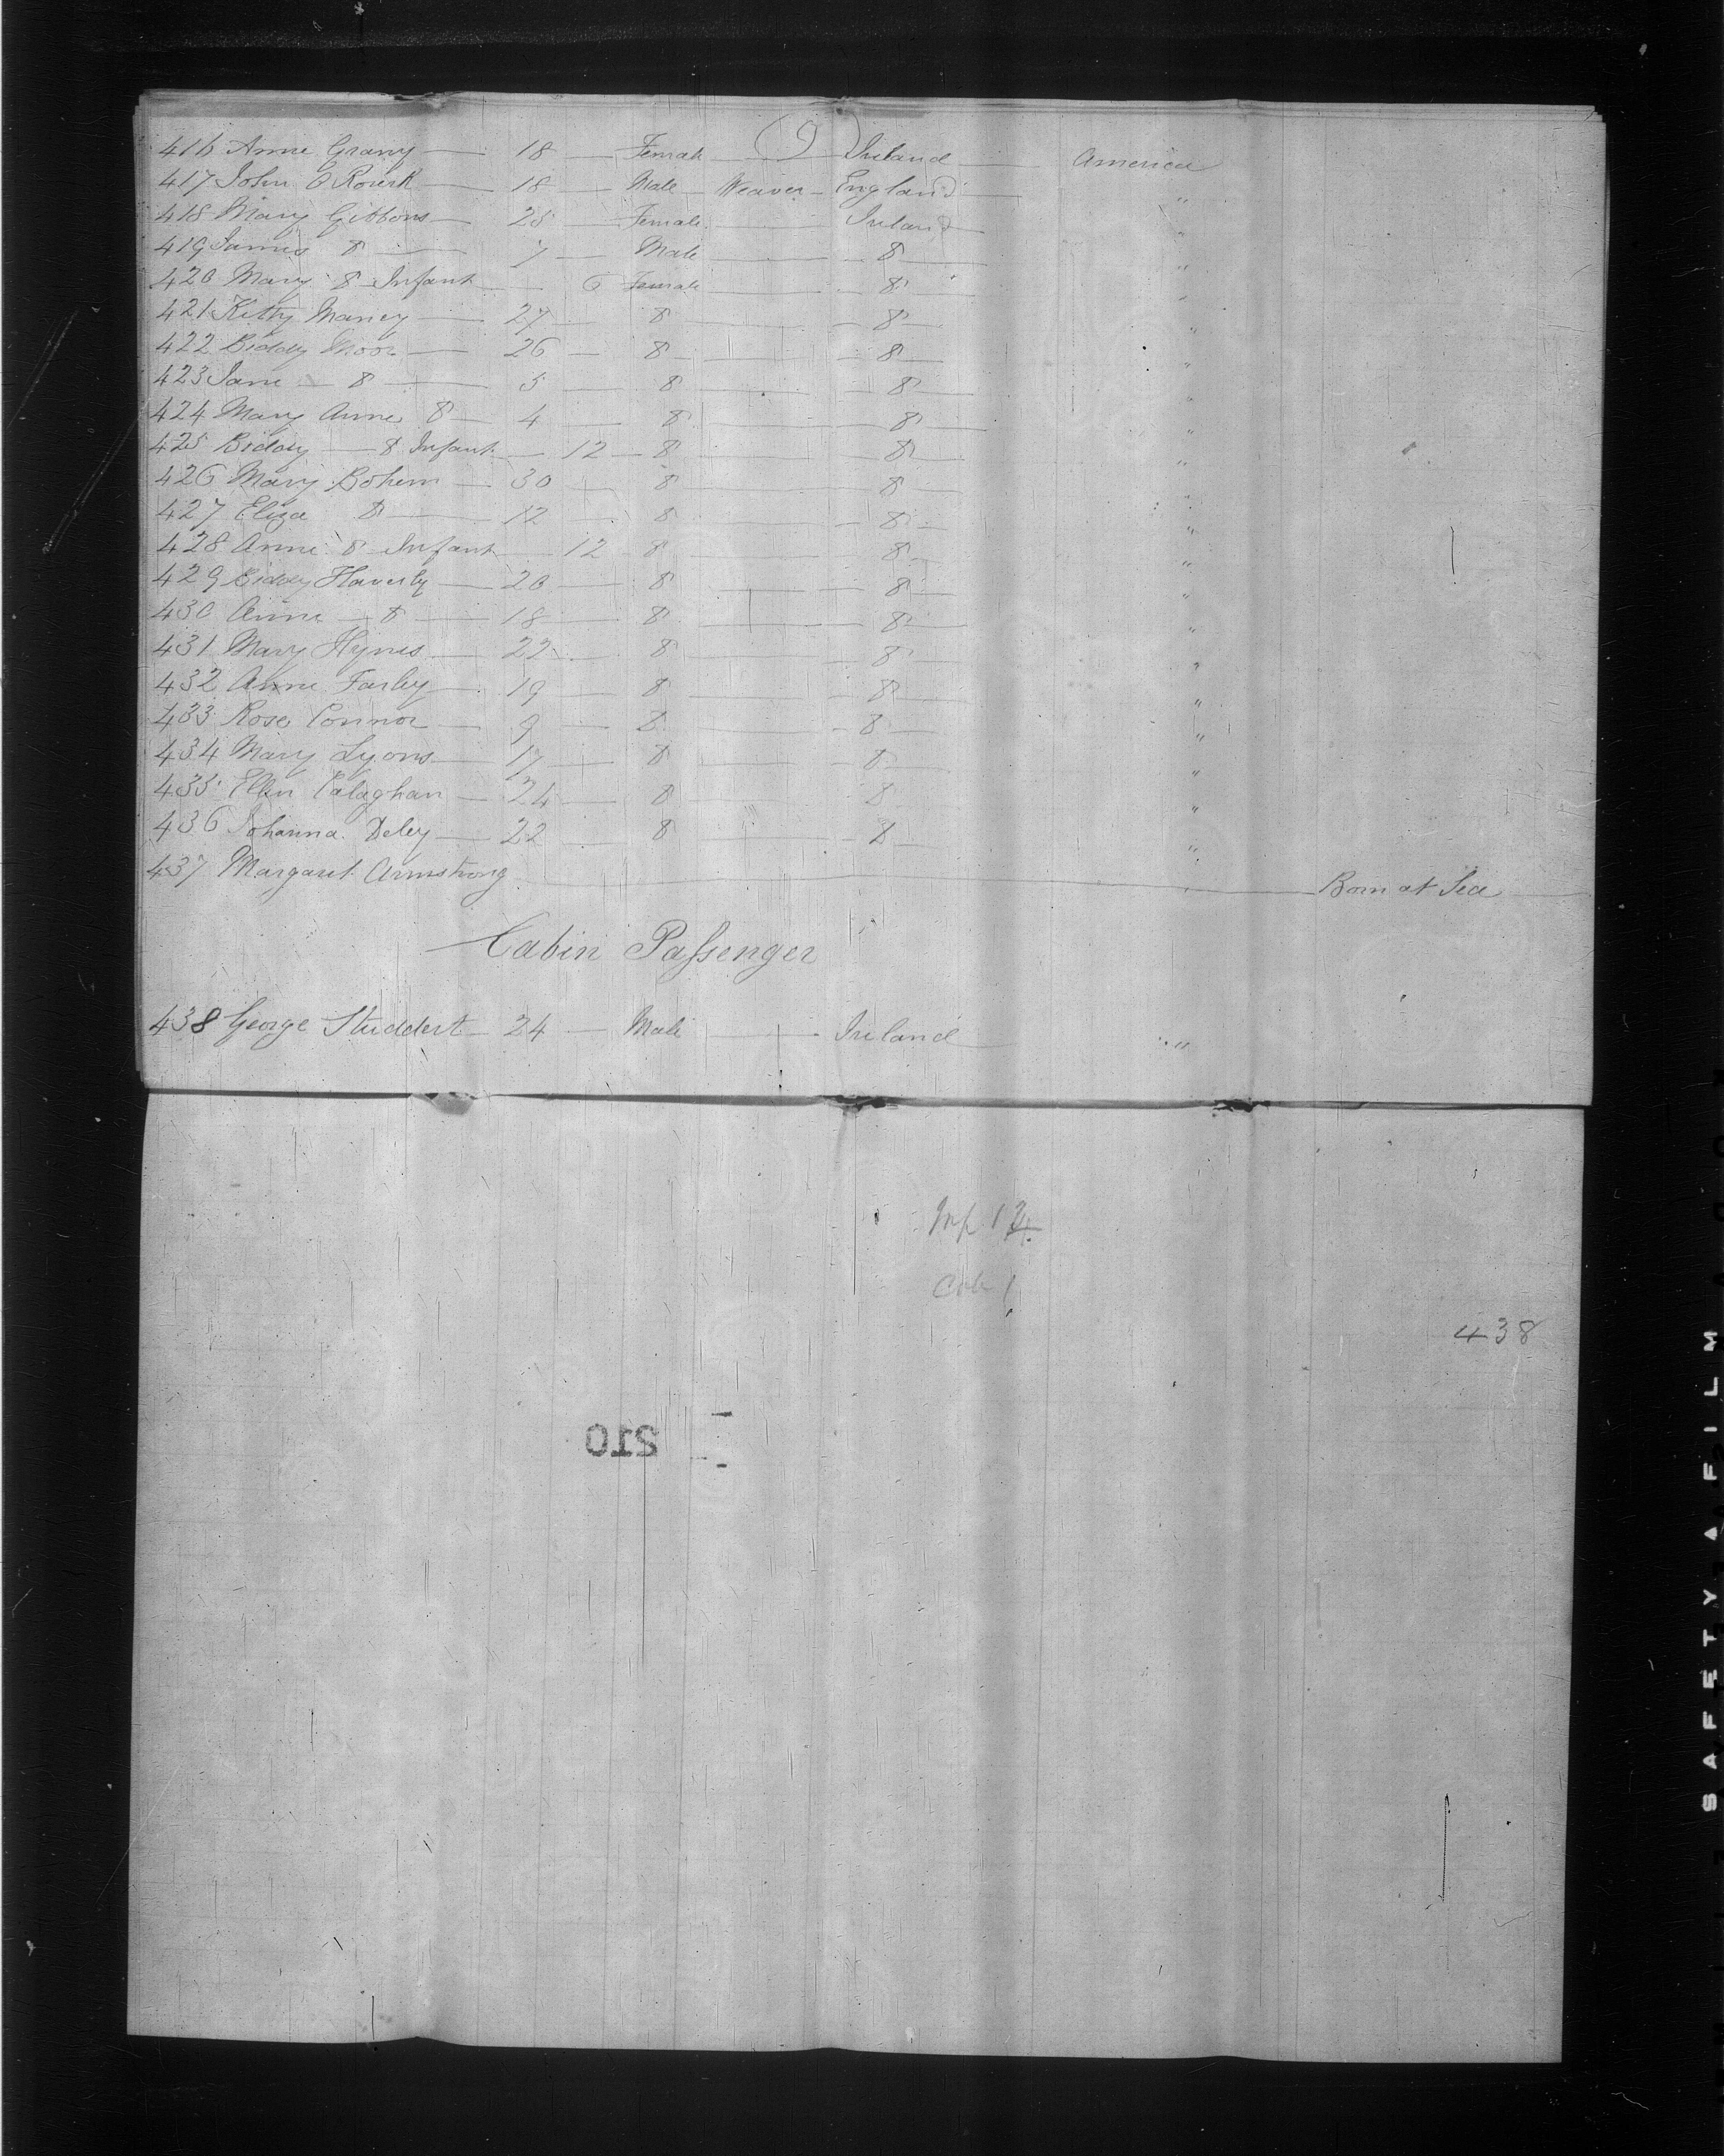 (9)
416 Anne Grany 18 Female Ireland America
417 John O Rourk 18 Male Weaver England "
418 Mary Gibbons 25 Female Ireland "
419 James Do 7 Male Do "
420 Mary Do Infant 6 Female Do "
421 Kitty Maney 27 Do Do "
422 Biddy Moor 26 Do Do "
423 Jane Do 5 Do Do "
424 Mary Anne Do 4 Do Do "
425 Biddy Do Infant 12 Do Do "
426 Mary Bohem 30 Do Do "
427 Eliza Do 12 Do Do "
428 Anne Do Infant 12 Do Do "
429 Biddy Haverly 20 Do Do "
430 Anne Do 18 Do Do "
431 Mary Hynes 22 Do Do "
432 Anne Farley 19 Do Do "
433 Rose Connor 9 Do Do "
434 Mary Lyons 17 Do Do "
435 Ellen Calaghan 24 Do Do "
436 Johanna Deley 22 Do Do "
437 Margaret Armstrong Born at Sea
Cabin Passenger
438 George Studdert 24 Male Ireland "
438
210
SAFETY A FILM